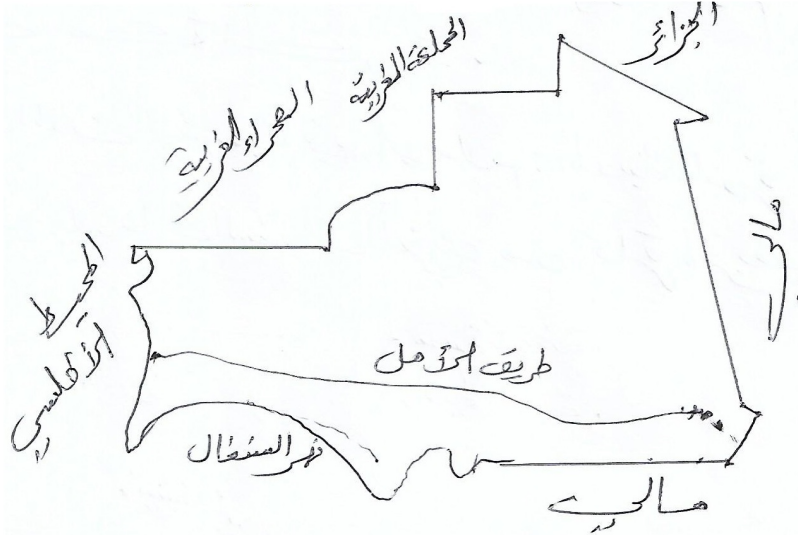 الجزائر
المملكة المغربية
الصحراء الغربية
مالي
المحيط
الأطلسي
طريق الأمل
نهر السنغال
مالي